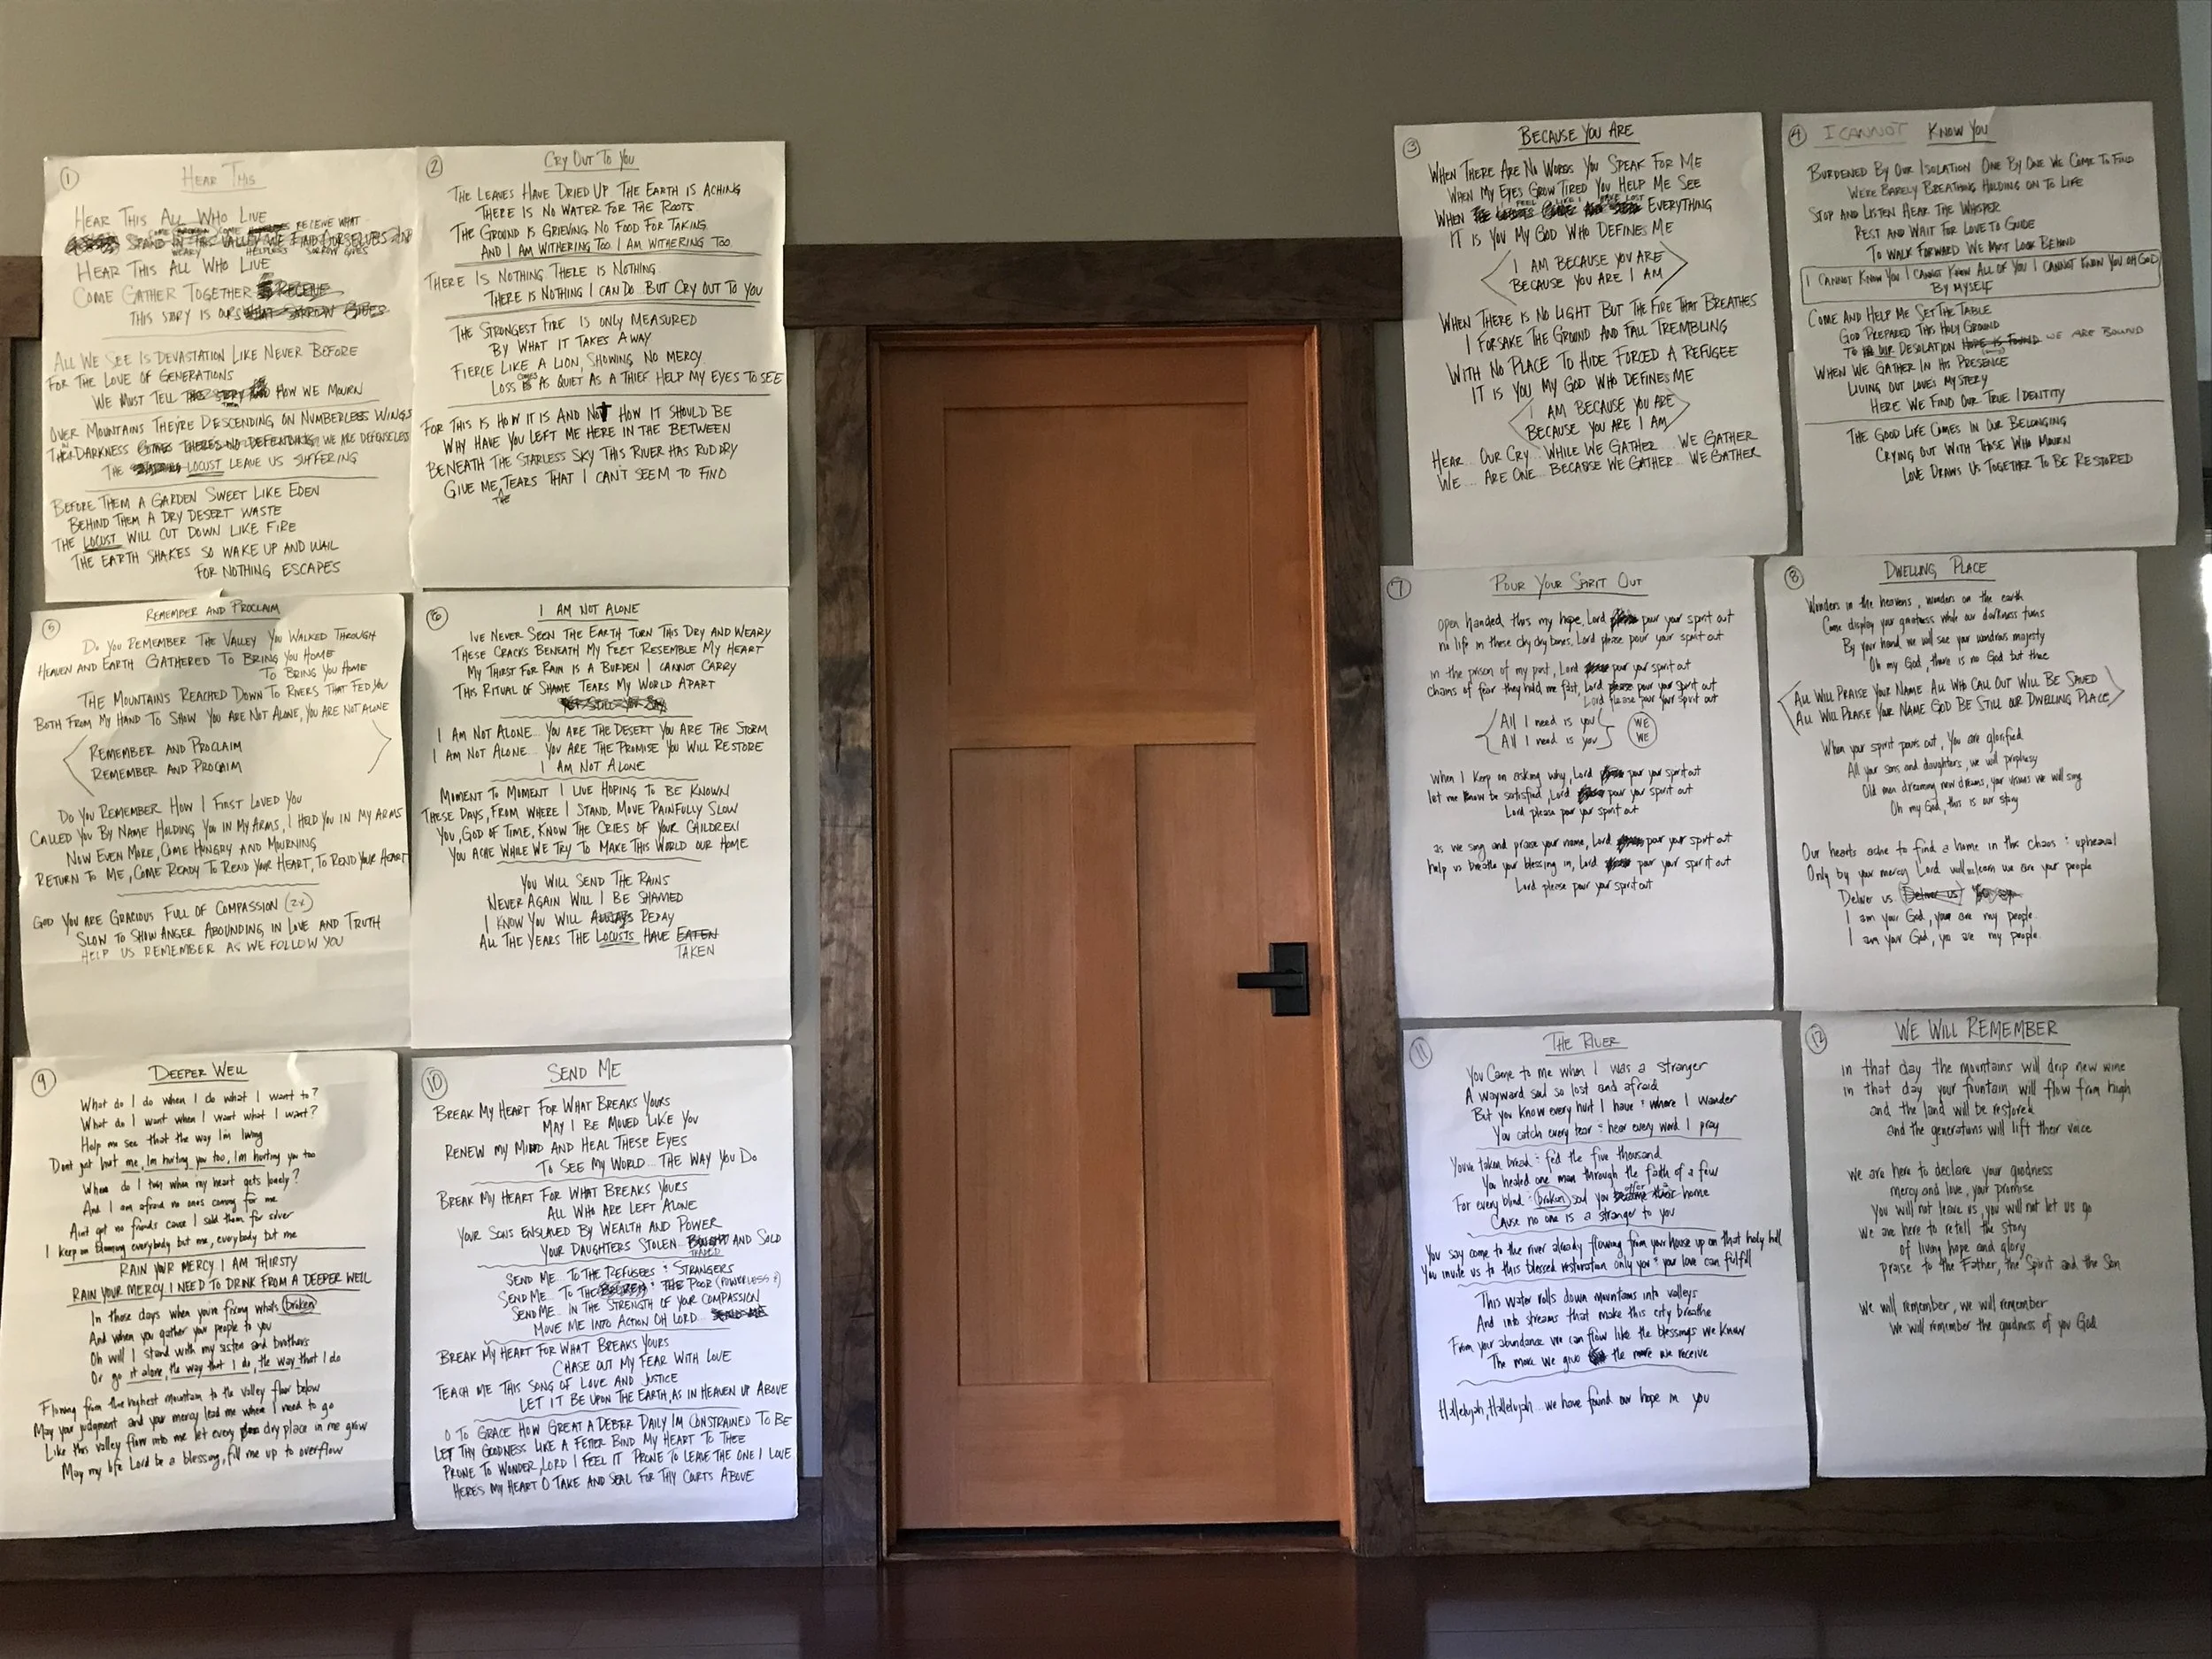 1
HEAR THIS
HEAR THIS ALL WHO LIVE
COME RECEIVE WHAT
STAND IN THIS VALLEY WE FIND OURSELVES
WEARY HELPLESS SORROW GIVES
HEAR THIS ALL WHO LIVE
COME GATHER TOGETHER RECEIVE
THIS STORY IS OURS WHAT SORROW GIVES
ALL WE SEE IS DEVASTATION LIKE NEVER BEFORE
FOR THE LOVE OF GENERATIONS
WE MUST TELL THIS STORY HOW WE MOURN
OVER MOUNTAINS THEY'RE DESCENDING ON NUMBERLESS WINGS
IN DARKNESS THERE'S NO DEFENDING WE ARE DEFENSELESS
THE LOCUST LEAVE US SUFFERING
BEFORE THEM A GARDEN SWEET LIKE EDEN
BEHIND THEM A DRY DESERT WASTE
THE LOCUST WILL CUT DOWN LIKE FIRE
THE EARTH SHAKES SO WAKE UP AND WAIL
FOR NOTHING ESCAPES
2
CRY OUT TO YOU
THE LEAVES HAVE DRIED UP THE EARTH IS ACHING
THERE IS NO WATER FOR THE ROOTS
THE GROUND IS GRIEVING NO FOOD FOR TAKING
AND I AM WITHERING TOO I AM WITHERING TOO
THERE IS NOTHING THERE IS NOTHING
THERE IS NOTHING I CAN DO... BUT CRY OUT TO YOU
THE STRONGEST FIRE IS ONLY MEASURED
BY WHAT IT TAKES AWAY
FIERCE LIKE A LION, SHOWING NO MERCY
LOSS COMES AS QUIET AS A THIEF HELP MY EYES TO SEE
FOR THIS IS HOW IT IS AND NOT HOW IT SHOULD BE
WHY HAVE YOU LEFT ME HERE IN THE BETWEEN
BENEATH THE STARLESS SKY THIS RIVER HAS RUN DRY
GIVE ME THE TEARS THAT I CAN'T SEEM TO FIND
3
BECAUSE YOU ARE
WHEN THERE ARE NO WORDS YOU SPEAK FOR ME
WHEN MY EYES GROW TIRED YOU HELP ME SEE
FEEL LIKE I HAVE LOST
WHEN EVERYTHING
IT IS YOU MY GOD WHO DEFINES ME
I AM BECAUSE YOU ARE
BECAUSE YOU ARE I AM
WHEN THERE IS NO LIGHT BUT THE FIRE THAT BREATHES
I FORSAKE THE GROUND AND FALL TREMBLING
WITH NO PLACE TO HIDE FORCED A REFUGEE
IT IS YOU MY GOD WHO DEFINES ME
I AM BECAUSE YOU ARE
BECAUSE YOU ARE I AM
HEAR... OUR CRY... WHILE WE GATHER... WE GATHER
WE... ARE ONE... BECAUSE WE GATHER... WE GATHER
4
I CANNOT KNOW YOU
BURDENED BY OUR ISOLATION ONE BY ONE WE COME TO FIND
WE'RE BARELY BREATHING HOLDING ON TO LIFE
STOP AND LISTEN HEAR THE WHISPER
REST AND WAIT FOR LOVE TO GUIDE
TO WALK FORWARD WE MUST LOOK BEHIND
I CANNOT KNOW YOU I CANNOT KNOW ALL OF YOU I CANNOT KNOW YOU OH GOD
BY MYSELF
COME AND HELP ME SET THE TABLE
GOD PREPARED THIS HOLY GROUND
TO OUR DESOLATION HOPE IS FOUND WE ARE BOUND
WHEN WE GATHER IN HIS PRESENCE
LIVING OUT LOVES MYSTERY
HERE WE FIND OUR TRUE IDENTITY
THE GOOD LIFE COMES IN OUR BELONGING
CRYING OUT WITH THOSE WHO MOURN
LOVE DRAWS US TOGETHER TO BE RESTORED
5
REMEMBER AND PROCLAIM
DO YOU REMEMBER THE VALLEY YOU WALKED THROUGH
HEAVEN AND EARTH GATHERED TO BRING YOU HOME
TO BRING YOU HOME
THE MOUNTAINS REACHED DOWN TO RIVERS THAT FED YOU
BOTH FROM MY HAND TO SHOW YOU ARE NOT ALONE, YOU ARE NOT ALONE
REMEMBER AND PROCLAIM
REMEMBER AND PROCLAIM
DO YOU REMEMBER HOW I FIRST LOVED YOU
CALLED YOU BY NAME HOLDING YOU IN MY ARMS, I HELD YOU IN MY ARMS
NOW EVEN MORE, COME HUNGRY AND MOURNING
RETURN TO ME, COME READY TO REND YOUR HEART, TO REND YOUR HEART
GOD YOU ARE GRACIOUS FULL OF COMPASSION (2X)
SLOW TO SHOW ANGER ABOUNDING IN LOVE AND TRUTH
HELP US REMEMBER AS WE FOLLOW YOU
6
I AM NOT ALONE
IVE NEVER SEEN THE EARTH TURN THIS DRY AND WEARY
THESE CRACKS BENEATH MY FEET RESEMBLE MY HEART
MY THIRST FOR RAIN IS A BURDEN I CANNOT CARRY
THIS RITUAL OF SHAME TEARS MY WORLD APART
I AM NOT ALONE... YOU ARE THE DESERT YOU ARE THE STORM
I AM NOT ALONE... YOU ARE THE PROMISE YOU WILL RESTORE
I AM NOT ALONE
MOMENT TO MOMENT I LIVE HOPING TO BE KNOWN
THESE DAYS, FROM WHERE I STAND, MOVE PAINFULLY SLOW
YOU, GOD OF TIME, KNOW THE CRIES OF YOUR CHILDREN
YOU ACHE WHILE WE TRY TO MAKE THIS WORLD OUR HOME
YOU WILL SEND THE RAINS
NEVER AGAIN WILL I BE SHAMED
I KNOW YOU WILL ALWAYS REPAY
ALL THE YEARS THE LOCUSTS HAVE EATEN
TAKEN
7
POUR YOUR SPIRIT OUT
open handed this my hope, Lord pour your spirit out
no life in these dry dry bones, Lord please pour your spirit out
in the prison of my past, Lord please pour your spirit out
chains of fear they hold me fast, Lord please pour your spirit out
Lord please pour your spirit out
All I need is you WE
All I need is you WE
When I keep on asking why, Lord pour your spirit out
let me know be satisfied, Lord pour your spirit out
Lord please pour your spirit out
as we sing and praise your name, Lord pour your spirit out
help us breathe your blessing in, Lord pour your spirit out
Lord please pour your spirit out
8
DWELLING PLACE
Wonders in the heavens, wonders on the earth
Come display your greatness while our darkness turns
By your hand we will see your wondrous majesty
Oh my God, there is no God but thee
ALL WILL PRAISE YOUR NAME ALL WHO CALL OUT WILL BE SAVED
ALL WILL PRAISE YOUR NAME GOD BE STILL OUR DWELLING PLACE
When your spirit pours out, You are glorified
All your sons and daughters, we will prophesy
Old men dreaming new dreams, your visions we will sing
Oh my God, this is our story
Our hearts ache to find a home in this chaos + upheaval
Only by your mercy Lord will learn we are your people
Deliver us (Deliver us)
I am your God, you are my people.
I am your God, you are my people.
9
DEEPER WELL
What do I do when I do what I want to?
What do I want when I want what I want?
Help me see that the way I'm living
Dont just hurt me, Im hurting you too, Im hurting you too
Where do I turn when my heart gets lonely?
And I am afraid no ones coming for me
Aint got no friends cause I sold them for silver
I keep on blaming everybody but me, everybody but me
RAIN YOUR MERCY I AM THIRSTY
RAIN YOUR MERCY I NEED TO DRINK FROM A DEEPER WELL
In those days when you're fixing whats broken
And when you gather your people to you
Oh will I stand with my sisters and brothers
Or go it alone, the way that I do, the way that I do
Flowing from the highest mountain to the valley floor below
May your judgment and your mercy lead me where I need to go
Like this valley flow into me let every dry place in me grow
May my life Lord be a blessing, fill me up to overflow
10
SEND ME
BREAK MY HEART FOR WHAT BREAKS YOURS
MAY I BE MOVED LIKE YOU
RENEW MY MIND AND HEAL THESE EYES
TO SEE MY WORLD... THE WAY YOU DO
BREAK MY HEART FOR WHAT BREAKS YOURS
ALL WHO ARE LEFT ALONE
YOUR SONS ENSLAVED BY WEALTH AND POWER
YOUR DAUGHTERS STOLEN BOUGHT AND SOLD
TRADED
SEND ME... TO THE REFUGEES + STRANGERS
SEND ME... TO THE BROKEN + THE POOR (POWERLESS?)
SEND ME... IN THE STRENGTH OF YOUR COMPASSION
MOVE ME INTO ACTION OH LORD... SEND ME
BREAK MY HEART FOR WHAT BREAKS YOURS
CHASE OUT MY FEAR WITH LOVE
TEACH ME THIS SONG OF LOVE AND JUSTICE
LET IT BE UPON THE EARTH, AS IN HEAVEN UP ABOVE
O TO GRACE HOW GREAT A DEBTER DAILY IM CONSTRAINED TO BE
LET THY GOODNESS LIKE A FETTER BIND MY HEART TO THEE
PRONE TO WONDER, LORD I FEEL IT PRONE TO LEAVE THE ONE I LOVE
HERES MY HEART O TAKE AND SEAL FOR THY COURTS ABOVE
11
THE RIVER
You Came to me when I was a stranger
A wayward soul so lost and afraid
But you know every hurt I have + where I wander
You catch every tear + hear every word I pray
Youve taken bread + fed the five thousand
You healed one man through the faith of a few
offer a
For every blind + broken soul you became their home
Cause no one is a stranger to you
You say come to the river already flowing from your house up on that holy hill
You invite us to this blessed restoration only you + your love can fulfill
This water rolls down mountains into valleys
And into streams that make this city breathe
From your abundance we can flow like the blessings we know
The more we give the more we receive
Hallelujah, Hallelujah... we have found our hope in you
12
WE WILL REMEMBER
in that day the mountains will drip new wine
in that day your fountain will flow from high
and the land will be restored
and the generations will lift their voice
we are here to declare your goodness
mercy and love, your promise
You will not leave us, you will not let us go
We are here to retell the story
of living hope and glory
praise to the Father, the Spirit and the Son
We will remember, we will remember
We will remember the goodness of you God